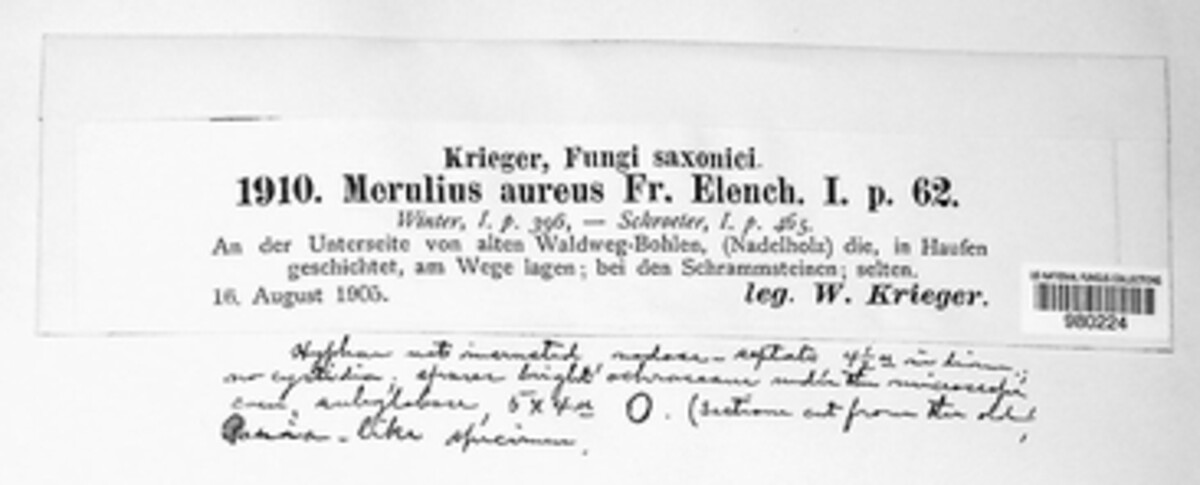 Krieger, Fungi saxonici.
1910. Merulius aureus Fr. Elench. I. p. 62.
Winter, I. p. 396, — Schroeter, I. p. 465.
An der Unterseite von alten Waldweg-Bohlen, (Nadelholz) die, in Haufen
geschichtet, am Wege lagen; bei den Schrammsteinen; selten.
16. August 1905.
leg. W. Krieger.
US NATIONAL FUNGUS COLLECTIONS
980224
Hyphae not incrusted, nodose-septate 4½ µ in diam.;
no cystidia; spores bright ochraceous under the microscope
even, subglobose, 5 x 4 µ O. (Sections cut from the old
-like specimen.